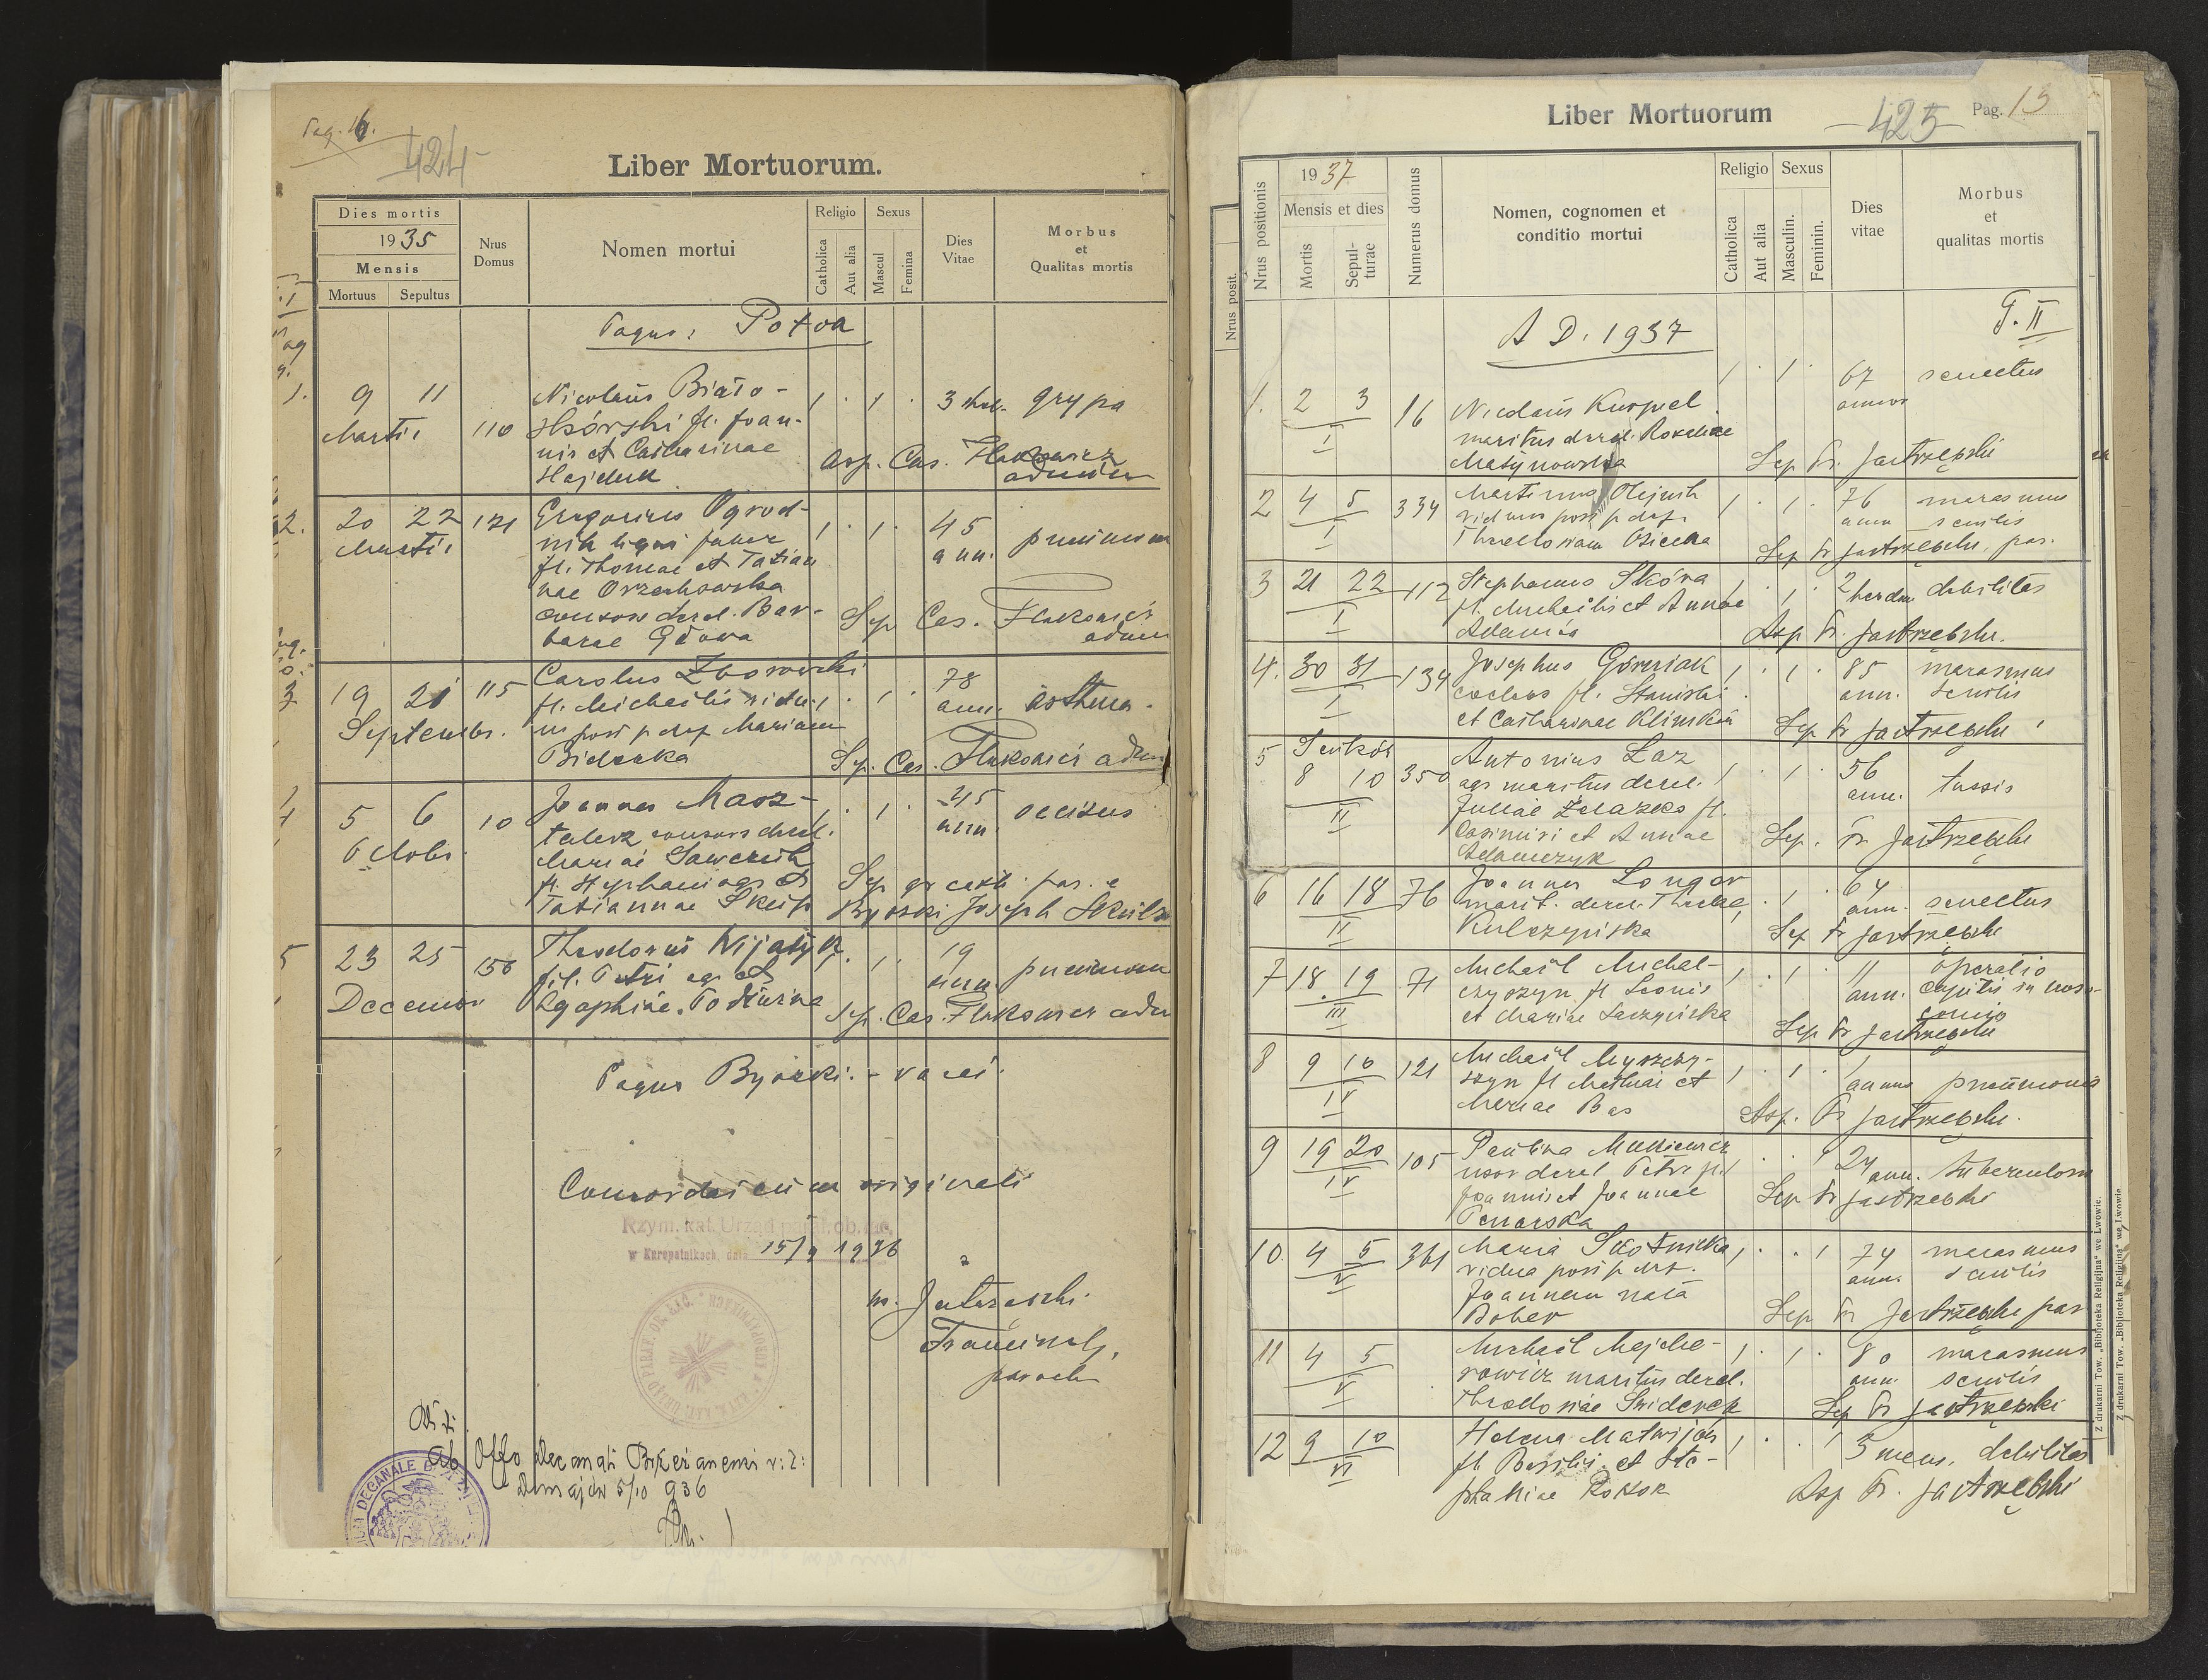 Pag. 6.
424
Liber Mortuorum.
Dies mortis
1935
Mensis
Mortuus
Sepultus
Nrus
Domus
Nomen mortui
Religio
Catholica
Aut alia
Sexus
Mascul
Femina
Dies
Vitae
Morbus
et
Qualitas mortis
Pagus: Potoa
1. 9 11
Martii
110
Nicolaus Biało-
skórski fl. Joan-
nis et Catharinae
Hajduk
3 grypa
Asp. Cas. Flakowicz
2. 20 22
Martii
121
Gregorius Ogrod-
nik ligni faber
fl. Thomae et Tatian
nae Orzechowska
consors derel. Bar-
barae
45
ann.
Sep. Cas. Flakowicz
3 19 21
Septembr.
115
Carolus Zborowski
fl. Michaëlis vidu-
us post p def Mariam
78
ann. asthma
Sep. Cas. Flakowicz adm
4 5 6
Octobr.
10
Joannes Masz-
talerz consors derel.
Mariae Sawczuk
fl. Stephani agr et
Tatiannae
45
ann.
occisus
Sep gr cath. par.
Byszki Joseph
5 23 25
Decembr
156
Theodorus
fil. Petri agr et
Agaphiae
19
ann.
Sep. Cas. Flakowicz adm
Pagus Byszki. - vacat.
Concordat cum originali
Rzym. kat. Urząd paraf. ob. łac.
w Kuropatnikach, dnia 15/9 1936
Jastrzębski
Franciscus,
paroch
Ab Offo Decanali Brzeżanensi
Dunajów 5/10 936
Liber Mortuorum
425
Pag. 13
Nrus posit.
Nrus positionis
1937
Mensis et dies
Mortis
Sepul-
turae
Numerus domus
Nomen, cognomen et
conditio mortui
Religio
Catholica
Aut alia
Sexus
Masculin.
Feminin.
Dies
vitae
Morbus
et
qualitas mortis
A D. 1937
T. II
1. 2 3
I
16
Nicolaus Kurpiel
maritus derel. Rosaliae
67
annos
senectus
Sep Fr. Jastrzębski
2 4 5
I
334
Martinus Olejnik
viduus post p def.
76
ann
marasmus
senilis
Sep Fr Jastrzębski, par.
3 21 22
I
112
Stephanus Skóra
fl. Michaëlis et Annae
Adamów
2
debilitas
Asp Fr. Jastrzębski.
4. 30 31
I
134
Josephus Górniak
caelebs fl. Stanislai
et Catharinae
85
ann.
marasmus
senilis
Sep Fr Jastrzębski
5
8 10
II
350
Antonius Łaz
agr maritus derel.
Juliae Żelazko fl.
Casimiri et Annae
Adamczyk
56
ann.
tussis
Sep. Fr Jastrzębski
6 16 18
II
76
Joannes Longar
marit. derel. Theclae
Kulczyńska
64
ann. senectus
Sep Fr Jastrzębski
7 18. 19
III
71
Michaël Michal-
czyszyn fl Leonis
et Mariae
11
ann.
operatio
capitis in noso-
comio
Sep Fr Jastrzębski
8 9 10
IV
121
Michaël Myszczy-
szyn fl Mathiae et
Mariae Bas
1
annus pneumonia
Asp. Fr Jastrzębski.
9 19 20
IV
105
Paulina Mackiewicz
uxor derel Petri fl.
Joannis et Joannae
24
ann. tuberculosa
Sep Fr Jastrzębski
10. 4 5
V
361
Maria Skotnicka
vidua post p def.
Joannem nata
Bober
74
ann.
marasmus
senilis
Sep Fr Jastrzębski par
11 4 5
V
Michaël Majche-
rowicz maritus derel.
Theodosiae Świderek
80
ann.
marasmus
senilis
Sep Fr Jastrzębski
12 9 10
VI
Helena Matwijów
fl Basilii et Ste-
phaniae Kokor
5 mens. debilitas
Asp Fr. Jastrzębski
Z drukarni Tow. „Bibljoteka Religijna" we Lwowie.
Z drukarni Tow. „Bibljoteka Religijna" we Lwowie.